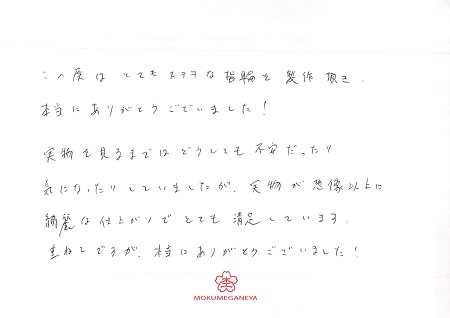 この度は とてもステキな指輪を製作頂き、
本当にありがとうございました!
実物を見るまではどうしても不安だったり
気になったりしていましたが、実物が想像以上に
綺麗な仕上がりでとても満足しています。
重ねてですが、本当にありがとうございました!
MOKUMEGANEYA